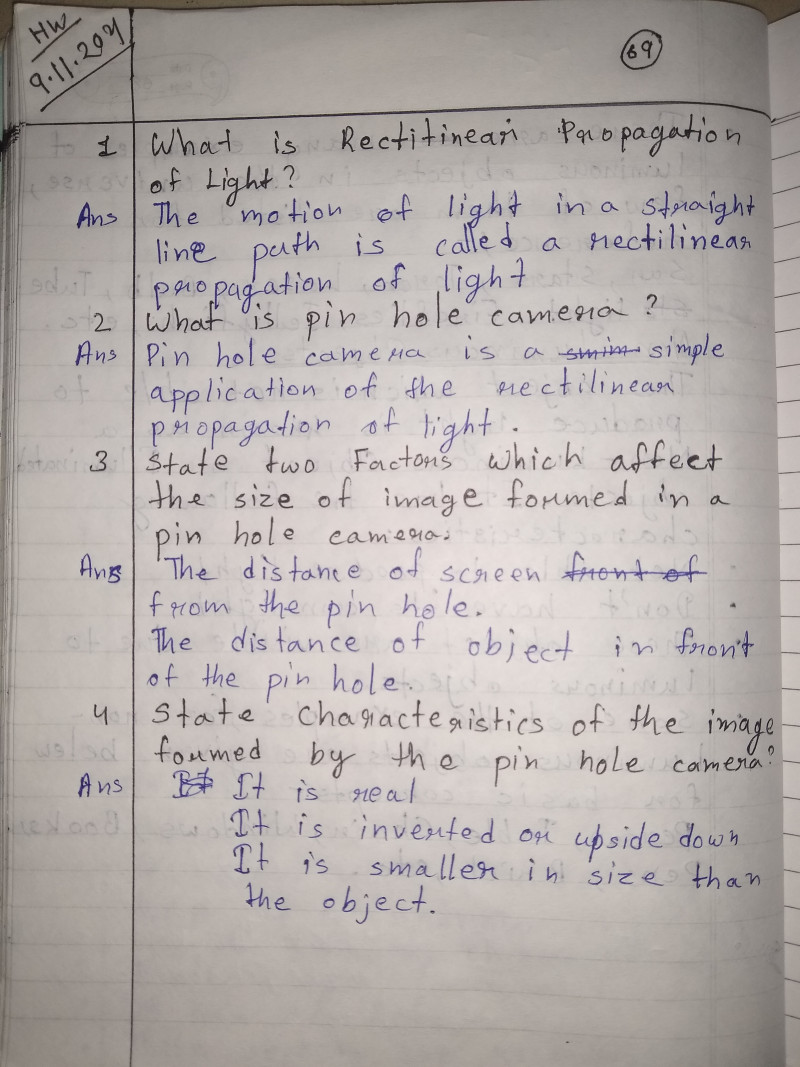 HW
9.11.2021
69
1 What is Rectitinear Propagation
of Light?
Ans The motion of light in a straight
line path is called a rectilinear
propagation of light
2 What is pin hole camera?
Ans Pin hole camera is a smim simple
application of the rectilinear
propagation of light.
3 State two Factors which affect
the size of image formed in a
pin hole camera.
Ans The distance of screen front of
from the pin hole.
The distance of object in front
of the pin hole.
4 State Characteristics of the image
formed by the pin hole camera?
Ans It It is real
It is inverted or upside down
It is smaller in size than
the object.